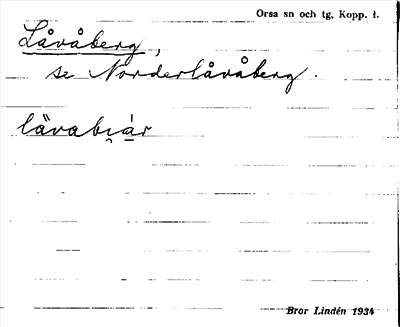 Orsa sn och tg, Kopp. l.
Låvåberg,
se Norderlåvåberg.
lävabi̯ár
Bror Lindén 1934